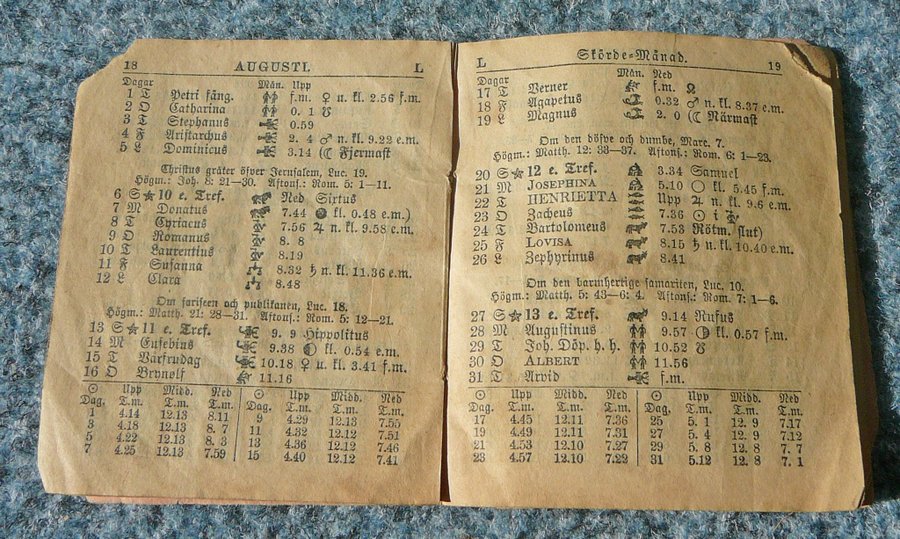 18 AUGUSTI. L
Dagar Mån. Upp
1 T Petri fäng. f.m. ♀ n. kl. 2.56 f.m.
2 O Catharina 0. 1 ☋
3 T Stephanus 0.59
4 F Aristarchus 2. 4 ♂ n. kl. 9.22 e.m.
5 L Dominicus 3.14 (☾ Fjermast
Christus gråter öfver Jerusalem, Luc. 19.
Högm.: Joh. 8: 21—30. Aftons.: Rom. 5: 1—11.
6 S ★ 10 e. Tref. Ned Sixtus
7 M Donatus 7.44 ● kl. 0.48 e.m.)
8 T Cyriacus 7.56 ♃ n. kl. 9.58 e.m.
9 O Romanus 8. 8
10 T Laurentius 8.19
11 F Susanna 8.32 ♄ n. kl. 11.36 e.m.
12 L Clara 8.48
Om fariseen och publikanen, Luc. 18.
Högm.: Matth. 21: 28—31. Aftons.: Rom. 5: 12—21.
13 S ★ 11 e. Tref. 9. 9 Hippolitus
14 M Eusebius 9.38 ◐ kl. 0.54 e.m.
15 T Vårfrudag 10.18 ♀ u. kl. 3.41 f.m.
16 O Brynolf 11.16
☉ Upp Midd. Ned ☉ Upp Midd. Ned
Dag. T.m. T.m. T.m. Dag. T.m. T.m. T.m.
1 4.14 12.13 8.11 9 4.29 12.13 7.55
3 4.18 12.13 8. 7 11 4.32 12.12 7.51
5 4.22 12.13 8. 3 13 4.36 12.12 7.46
7 4.25 12.13 7.59 15 4.40 12.12 7.41
L Skörde-Månad. 19
Dagar Mån. Ned
17 T Verner f.m. ☊
18 F Agapetus 0.32 ♂ n. kl. 8.37 e.m.
19 L Magnus 2. 0 (☾ Närmast
Om den döfve och dumbe, Marc. 7.
Högm.: Matth. 12: 33—37. Aftons.: Rom. 6: 1—23.
20 S ★ 12 e. Tref. 3.34 Samuel
21 M JOSEPHINA 5.10 ○ kl. 5.45 f.m.
22 T HENRIETTA Upp ♃ n. kl. 9.6 e.m.
23 O Zacheus 7.36 ☉ i ♍
24 T Bartolomeus 7.53 Rötm. slut)
25 F LOVISA 8.15 ♄ n. kl. 10.40 e.m.
26 L Zephyrinus 8.41
Om den barmhertige samariten, Luc. 10.
Högm.: Matth. 5: 43—6: 4. Aftons.: Rom. 7: 1—6.
27 S ★ 13 e. Tref. 9.14 Rufus
28 M Augustinus 9.57 ◑ kl. 0.57 f.m.
29 T Joh. Döp. h. h. 10.52 ☋
30 O ALBERT 11.56
31 T Arvid f.m.
☉ Upp Midd. Ned ☉ Upp Midd. Ned
Dag. T.m. T.m. T.m. Dag. T.m. T.m. T.m.
17 4.45 12.11 7.36 25 5. 1 12. 9 7.17
19 4.49 12.11 7.31 27 5. 4 12. 9 7.12
21 4.53 12.10 7.27 29 5. 8 12. 8 7. 7
23 4.57 12.10 7.22 31 5.12 12. 8 7. 1